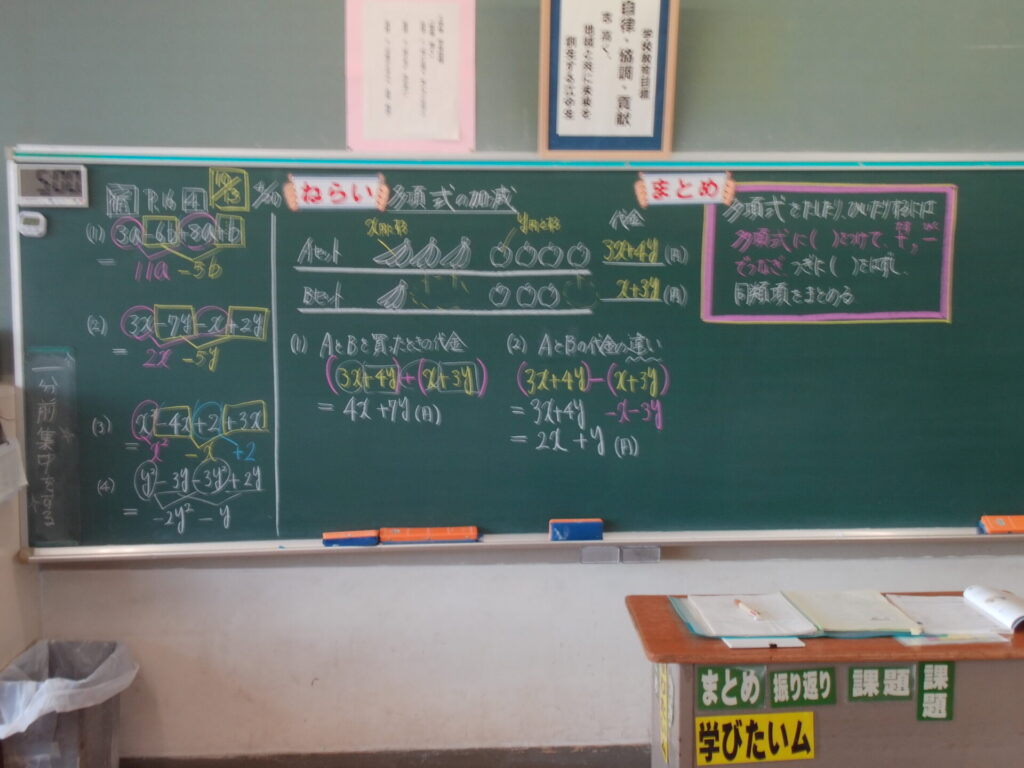 自律・協調・貢献
学校教育目標
5:00
P.16 4
(1) 3a-6b+8a+b
= 11a -5b
(2) 3x-7y-x+2y
= 2x -5y
(3) x²-4x+2+3x
= x² -x +2
(4) y²-3y-3y²+2y
= -2y² -y
一分前集中をする
ねらい 多項式の加減
x円 y円 代金
Aセット 3x+4y (円)
Bセット x+3y (円)
(1) AとBを買ったときの代金
(3x+4y)+(x+3y)
= 4x+7y (円)
(2) AとBの代金の違い
(3x+4y)-(x+3y)
= 3x+4y -x-3y
= 2x+y (円)
まとめ
多項式をたしたり、ひいたりするには
多項式に( )をつけて、
でつなぎ
同類項をまとめる
まとめ 振り返り 課題 課題
学びたいム